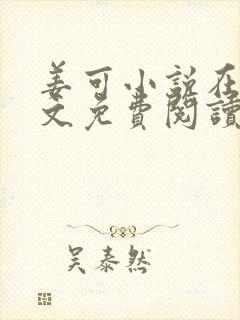 姜可小说在
文免费阅读
吴泰然